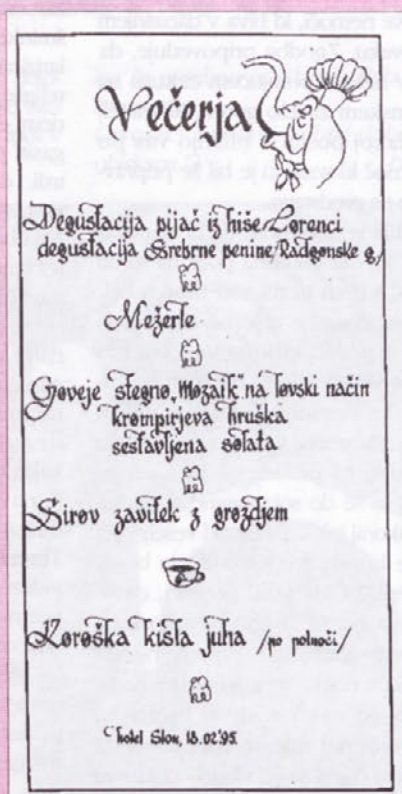 Večerja
Degustacija pijač iz hiše Lorenci
degustacija Srebrne penine/Radgonske g./
Mežerle
Goveje stegno „Mozaik" na lovski način
krompirjeva hruška
sestavljena solata
Sirov zavitek z grozdjem
Koroška kisla juha /po polnoči/
hotel Slon, 18.02'95.